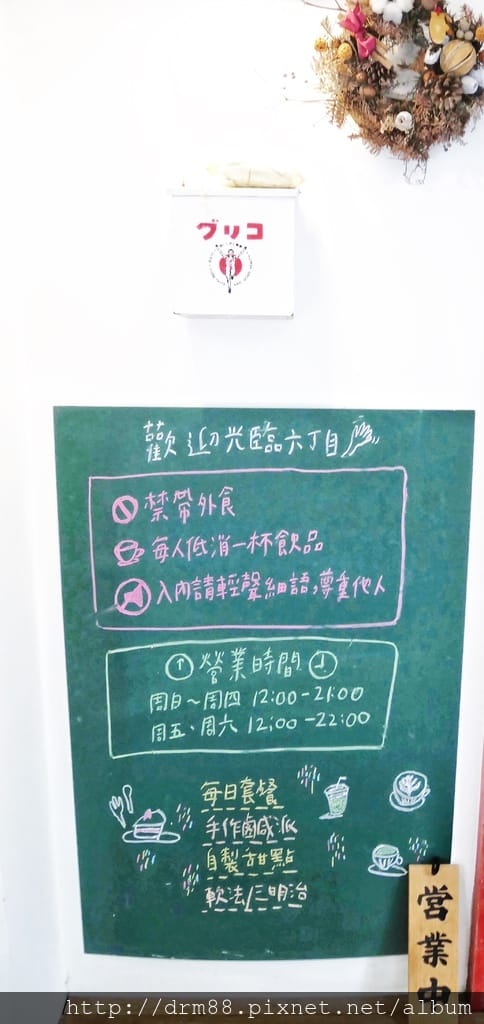 グリコ
歡迎光臨六丁目
禁帶外食
每人低消一杯飲品
入內請輕聲細語,尊重他人
營業時間
周日~周四 12:00-21:00
周五、周六 12:00-22:00
每日套餐
手作鹵咸派
自製甜點
軟法/三明治
營業中
http://drm88.pixnet.net/album